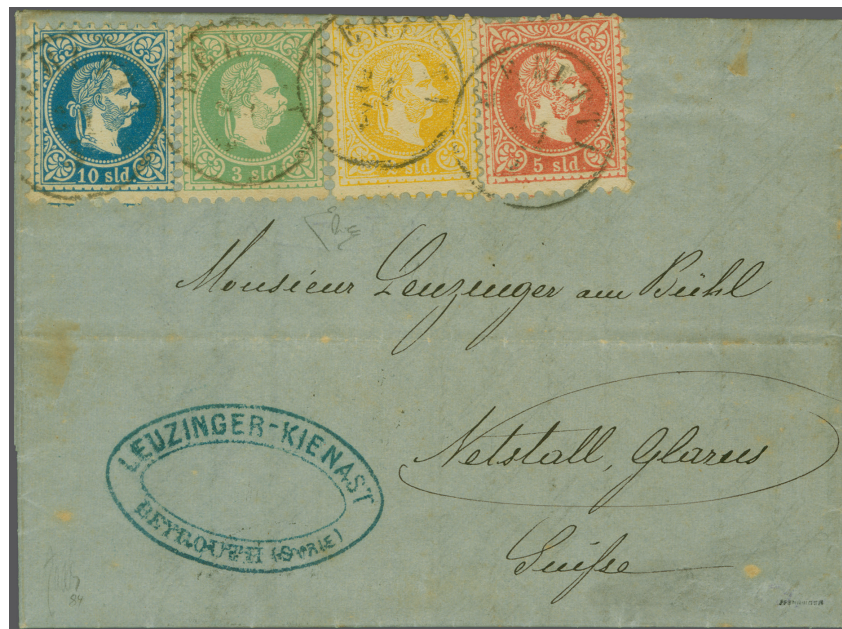 10 sld.
3 sld.
sld.
5 sld.
Monsieur Leuzinger am Bühl
Netstall, Glarus
Suisse
LEUZINGER-KIENAST
BEYROUTH (SYRIE)
84